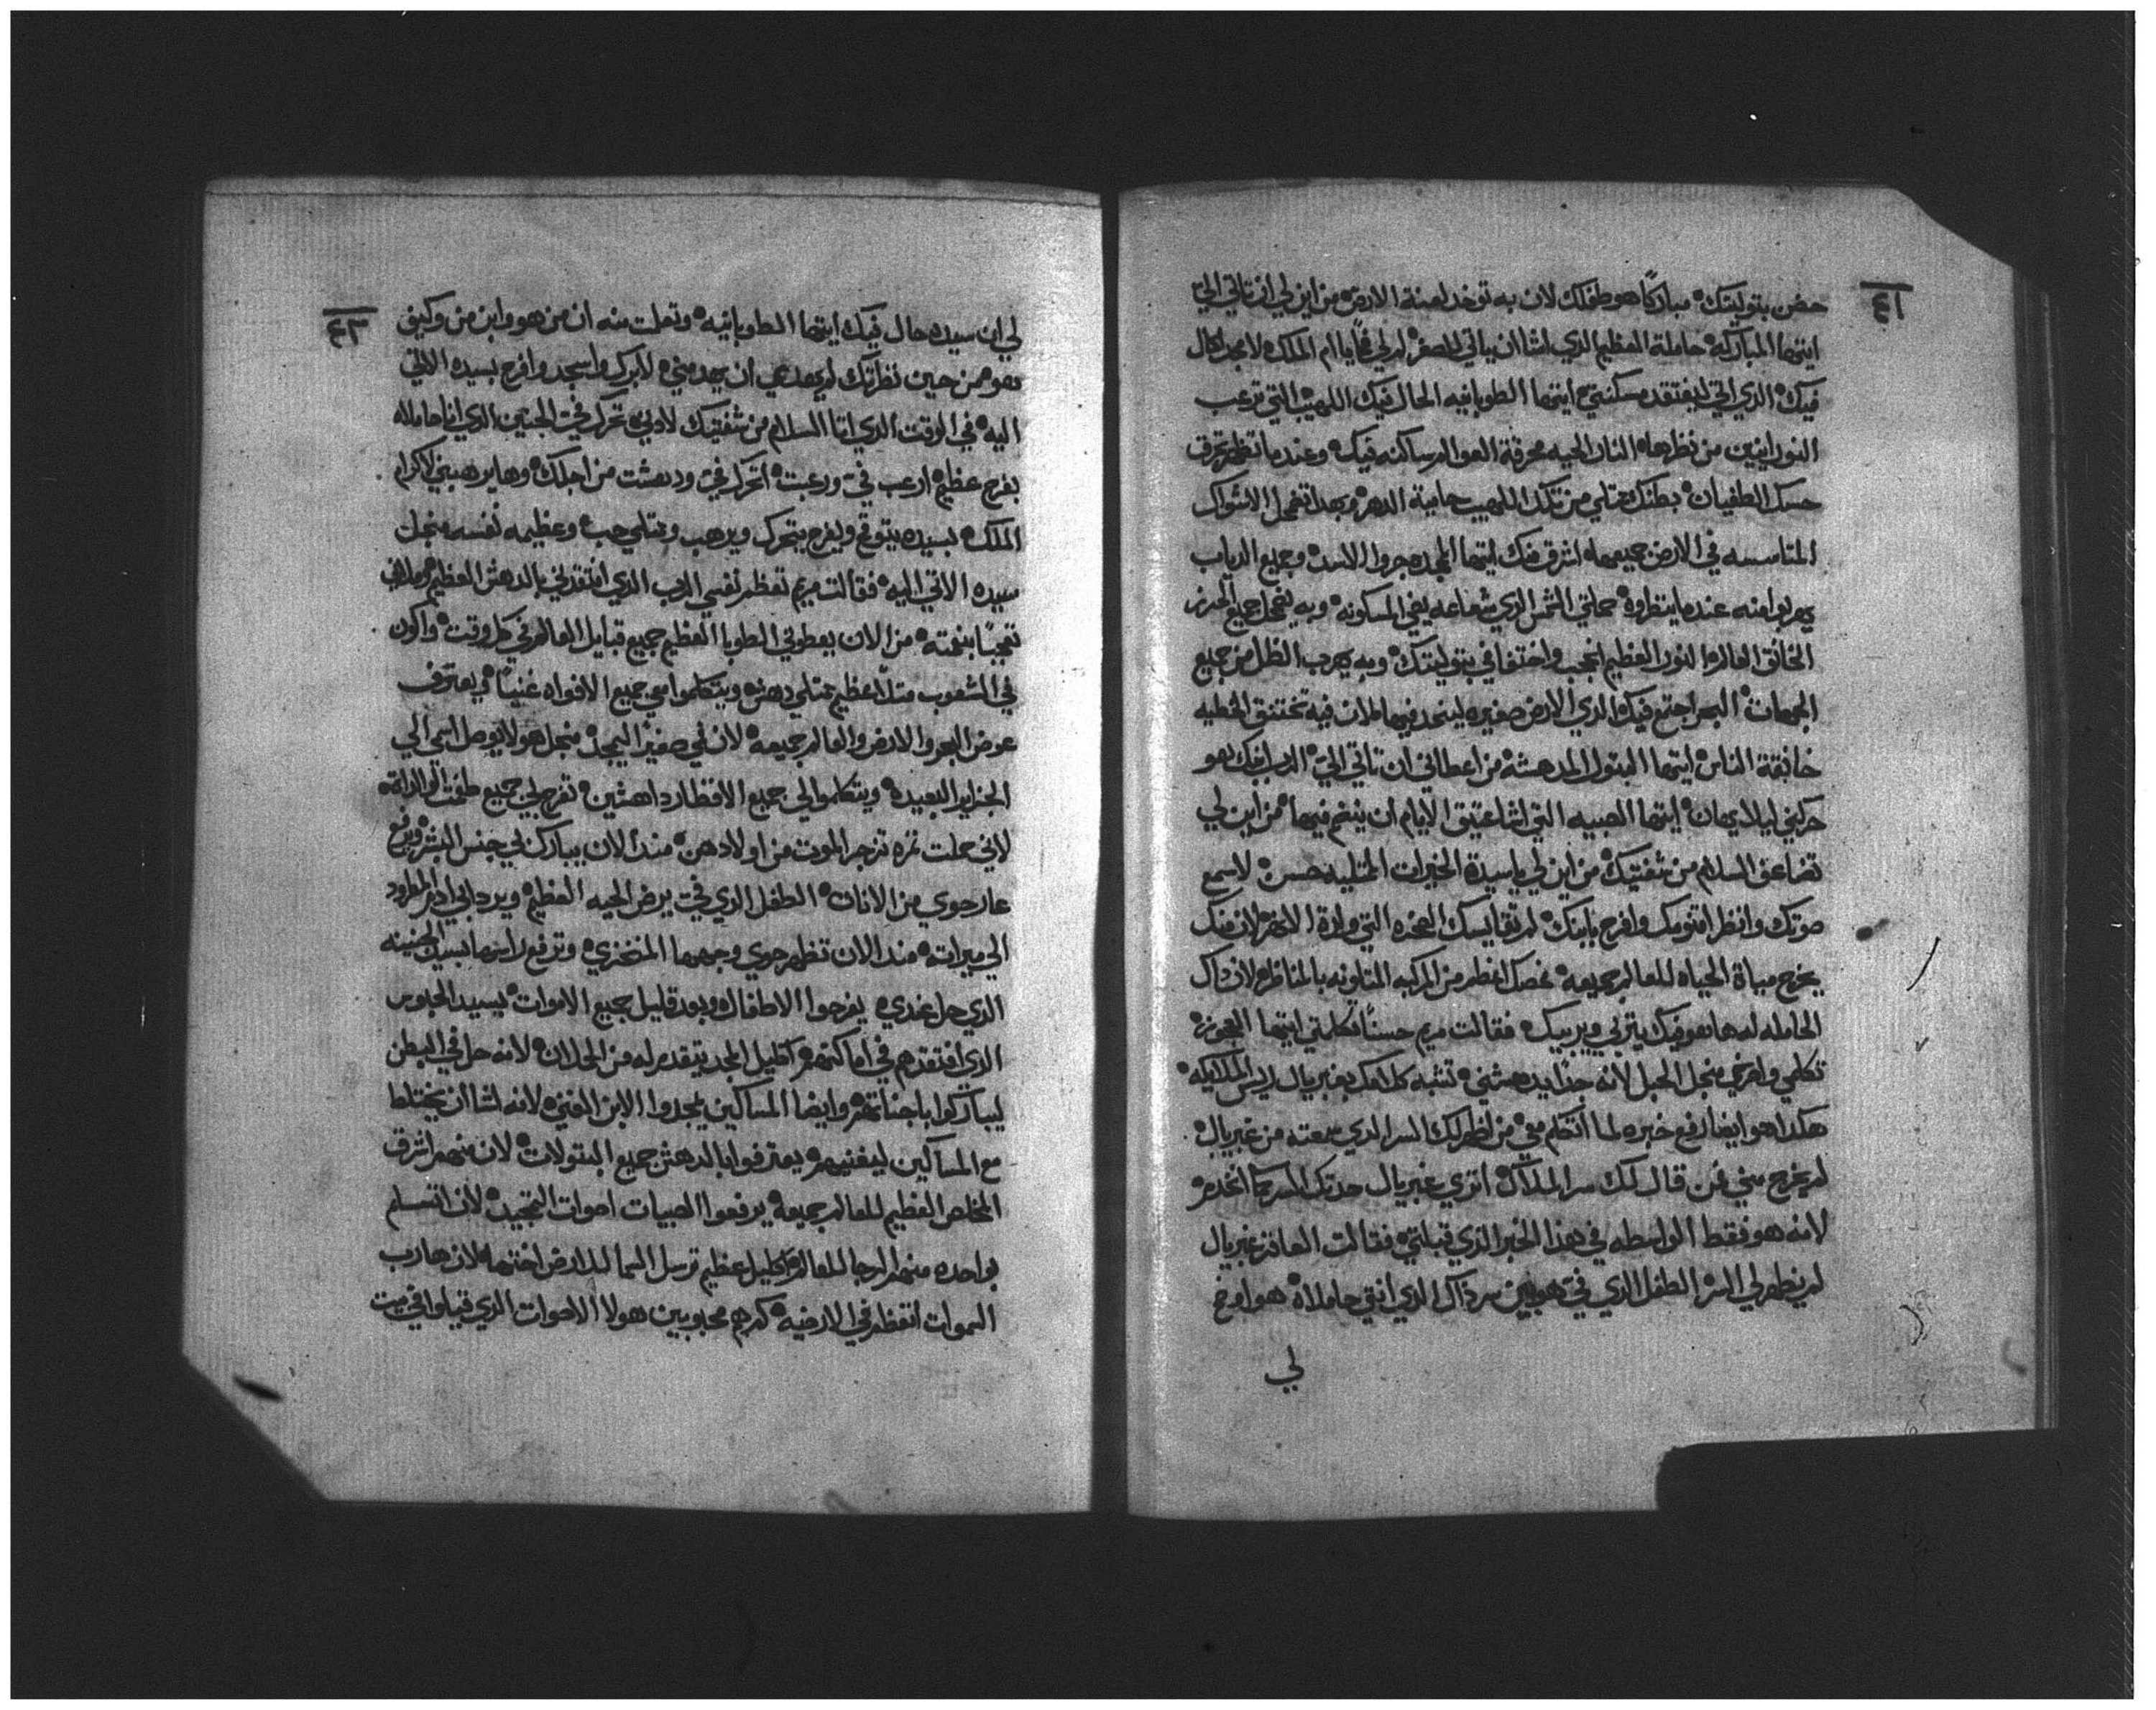 ٤١
حضن بتوليتك مباركاً هو طفلك لان به توخد لعنة الارض من اين لي ان تاتي الي
ايتها المباركه حاملة العظيم الذي لشا ان ياتي للصغر يا ام الملك
فيك الذي اتي ليفتقد مسكنتي ايتها الطوبانيه الحال فيك اللهيب التي ترعب
النورانيين من نظرها النار الحيه محرقة العوالم ساكنه فيك وعندما تظهر تحرق
حسك الطغيان بطنك ممتلي من تلك اللهيب حامية الدهر وبهدا تضمحل الاشواك
المتاسسه في الارض جميعها اشرق منك ايتها المجده جروا الاسد وجميع الدياب
يهربوا منه عندما ينظروه حملتي الشمس الذي شعاعه يضي المسكونه وبه يضمحل جميع الحزن
الخانق العالم النور العظيم انحجب واختفا في بتوليتك وبه يهرب الظل من جميع
الجهات البحر اجتمع فيك الذي الارض صغيره ليتحد فيها لان فيه تختنق الخطيه
خانقة الناس ايتها البتول المدهشه من اعطاني ان تاتي الي الرب ابنك هو
حركني ليلا ايتها الصبيه التي لشا عتيق الايام ان ينضم فيها من اين لي
تضاعف السلام من شفتيك من اين لي يا سيدة الخيرات الممتليه حسن لاسمع
صوتك وانظر اقنومك وافرح بابنك لم تقايسك الصخره التي والدة الانهر لان منك
يخرج مياة الحياه للعالم جميعه غصك اعظم من المركبه المتلونه بالمناظر لان داك
الحامله لها هو فيك يتربي ويربيك فقالت مريم حسناً تكلمتي ايتها العجوزه
تكلمي وافرحي منجل الحبل لانه جداً يدهشني تشبه كلامك بغبريال ريس الملايكه
هكدا هو ايضا رفع خبره لما اتكلم معي من اظهر لك السر الذي سمعته من غبريال
لم يخرج مني فمن قال لك سر الملاك اتري غبريال حدتك السر كما اتخدم
لانه هو فقط الواسطه في هذا الخبر الذي قبلتي فقالت العاقر غبريال
لم يظهر لي السر الطفل الذي في هو بين سر ذاك الذي انتي حاملاه هو اوضح
لي
٤٢
لي ان سيده حال فيك ايتها الطوبانيه وتعلمت منه ان من هو وابن من وكيف
هو من حين نظرتك لم يهدي ان يهد مني لابرك واسجد وافرح بسيده الاتي
اليه في الوقت الذي اتا السلام من شفتيك لادني تحرك في الجنين الذي انا حاملاه
بفرح عظيم ارعب في ورعبت اتحرك في ودهشت من اجلك وها يرهبني لاكرام
الملك بسيده يتوقع ويفرح يتحرك ويرهب وممتلي حب وعظيمه نفسه منجل
سيده الاتي اليه فقالت مريم تعظم نفسي الرب الذي افتقدني بالدهش العظيم وملاني
تعجباً بنعمته من الان يعطوني الطوبا العظيم جميع قبايل العالم في كل وقت واكون
في الشعوب مثلاً عظيم ممتلي دهش ويتكلموا معي جميع الافواه غنياً في يعترف
عوض البحر والارض والعالم جميعه لان لي صغير اليمجد منجل هولا يوصل اسمي الي
الجزاير البعيده ويتكلموا لي جميع الاقطار داهشين تفرح لي جميع طغمت الوالداته
لاني حملت تمره تزجر الموت من اولادهن مند الان يبارك لي جنس البشر ويرفع
عار حوي من الانات الطفل الذي في يرض الحيه العظيم ويرد ابي ادم المطرود
الي ميراته مند الان تظهر حوي وجهها المنخزي وترفع راسها بسبب الجنينه
الذي حل عندي يفرحوا الاطفال وبعد قليل جميع الاموات بسيد الجابوس
الذي افتقدهم في اماكنهم اكليل المجد يتقدم له من الحملان لانه حل في البطن
ليباركوا باجناتهم وايضا المساكين يمجدوا الابن الغني لانه لشا ان يختلط
مع المساكين ليغنيهم يعترفوا بالدهش جميع البتولات لان منهم اشرق
المخلص العظيم للعالم جميعه يرفعوا الصبيات اصوات التمجيد لان اتسلم
بواحده منهم الرجا للعالم اكليل عظيم ترسل السما للارض اختها لان هارب
السموات اتعظم في الارضيه كم هم محبوبين هولا الاصوات الذي قيلوا في بيت